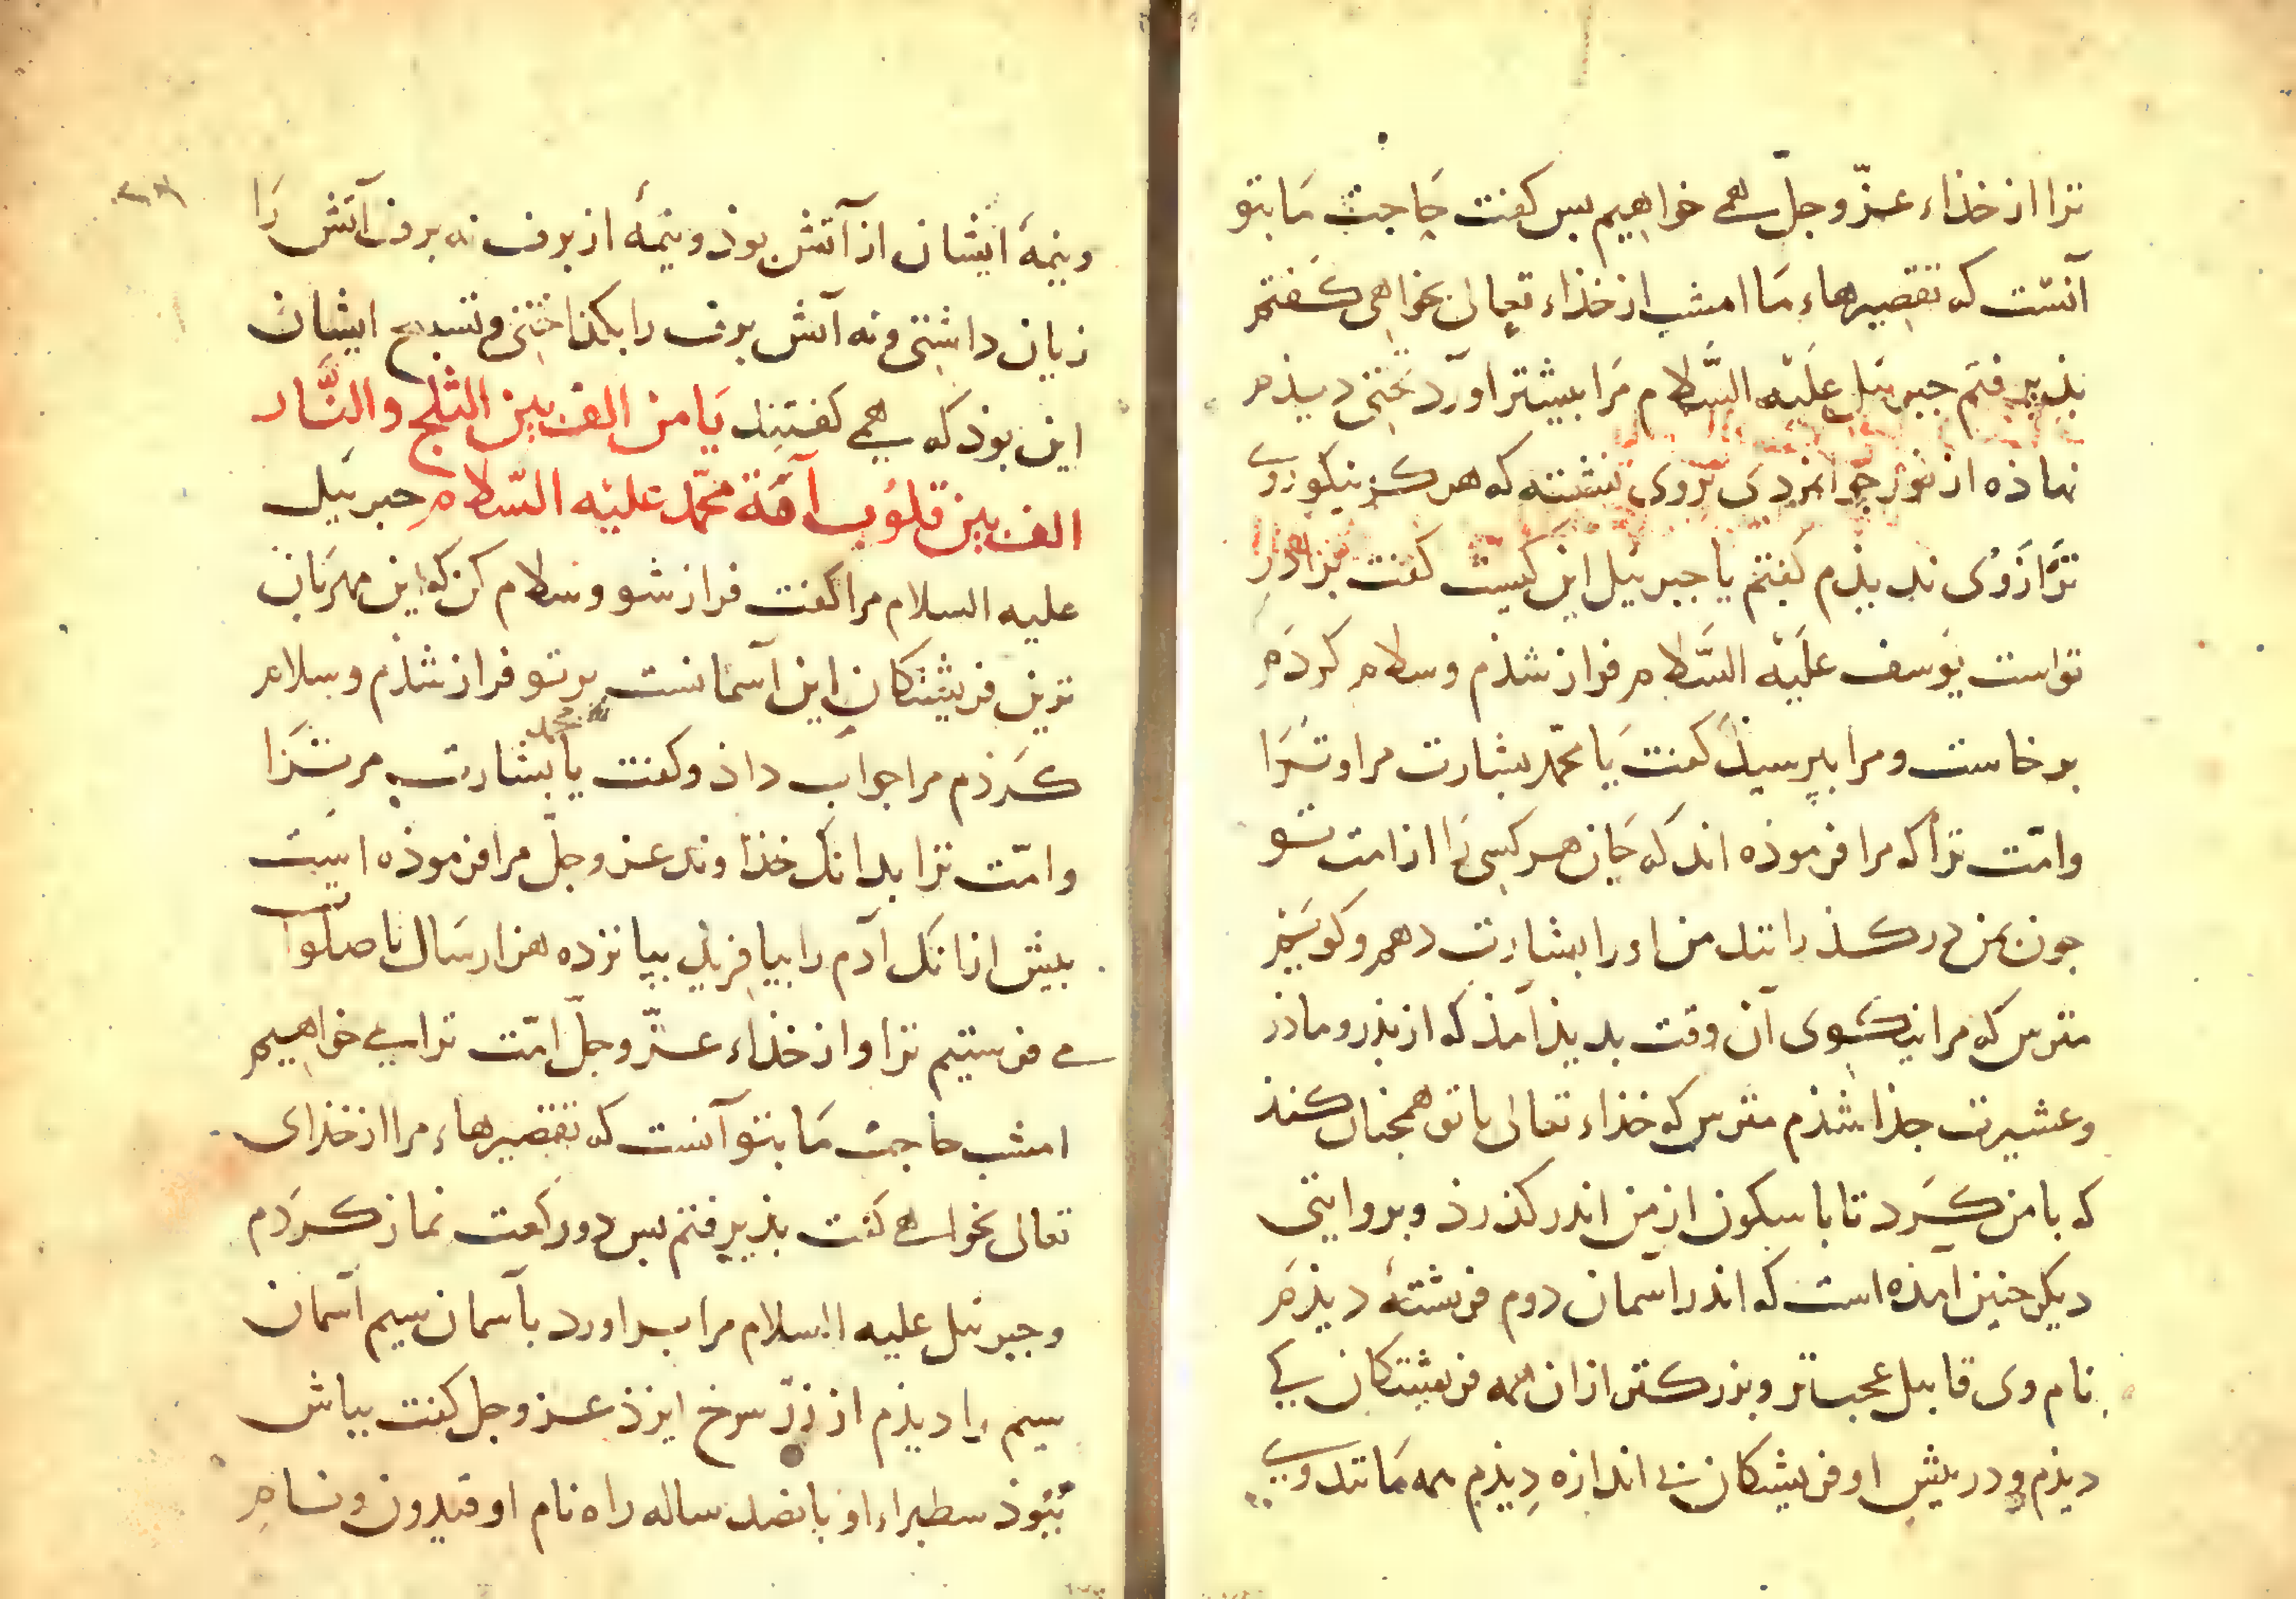 ترا از خذاء عزّ و جلّ همی خواهیم بس کفت حاجت ما بتو
آنست که تقصیرهاء ما امشب از خذاء تعالی بخواهی کفتم
بذیرفتم جبرئیل علیه السّلام مرا بیشتر اورد تختی دیذم
نهاذه از نور جوانمردی بروی نشسته که هرکز نیکوروی
تر از وی ندیذم کفتم یا جبرئیل این کیست کفت برادر
تواست یوسف علیه السّلام فراز شذم و سلام کردم
برخاست و مرا ببرسیذ کفت یا محمّد بشارت مر اوترا
و امّت ترا که مرا فرموذه اند که جان هر کسی را از امت تو
جون بمن در کذرانند من او را بشارت دهم و کویم
مترس که مرا نیکوی آن وقت بدیذ آمذ که از بذر و ماذر
و عشیرت جذا شذم مترس که خذاء تعالی با تو همجنان کنذ
که با من کرد تا باسکون از من اندر کذرذ و بروایتی
دیکر جنین آمذه است که اندر آسمان دوم فرشتهٔ دیذم
نام وی قابیل عجب تر و بزرکتر ازان همه فریشتکان یکی
دیذم و در بیش او فریشتکان بی اندازه دیذم همه مانند وی
و نیمهٔ ایشان از آتش بوذ و نیمهٔ از برف نه برف آتش را
زیان داشتی و نه آتش برف را بکذاختی و تسبیح ایشان
این بوذ که همی کفتند یا من الف بین الثلج و النّار
الف بین قلوب آمّة محمّد علیه السّلام جبرئیل
علیه السلام مرا کفت فراز شو و سلام کن که این مهربان
ترین فریشتکان این آسمانست بر تو فراز شذم و سلام
کرذم مرا جواب داذ و کفت یا محمد بشارت مر ترا
و امّت ترا بدانک خذاوند عز و جلّ مرا فرموذه است
بیش ازانک آدم را بیافریذ ببانزده هزار سال تا صلوات
می فرستیم ترا و از خذاء عزّ و جلّ امّت ترا می خواهیم
امشب حاجت ما بتو آنست که تقصیرهاء مرا از خذای
تعالی بخواهی کفت بذیرفتم بس دو رکعت نماز کردم
و جبرئیل علیه السلام مرا برآورد بآسمان سیم آسمان
سیم را دیذم از زرّ سرخ ایزذ عز و جل کفت بباش
ببوذ سطبراء او بانصد ساله راه نام او قیدون و نام